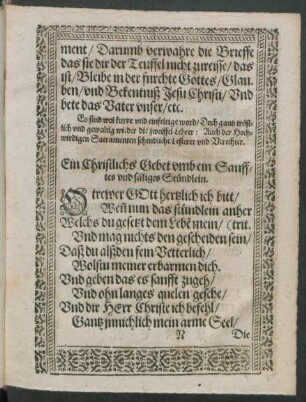 ment/ Darumb verwahre die Brieffe
das sie dir der Teuffel nicht zureisse/ das
ist/ Bleibe in der furchte Gottes/ Glau-
ben/ vnd Bekentnuß Jesu Christi/ Vnd
bete das Vater vnser/ etc.
Es sind wol kurtze vnd einfeltige wort/ Doch gantz tröst-
lich vnd gewaltig wider die Lehrer: Auch der Hoch-
wirdigen Sacramenten schendliche Lesterer vnd Verechter.
Ein Christlichs Gebet vmb ein Sauff-
tes vnd säliges Stündlein.
O trewer GOtt hertzlich ich bitt/
Weñ nun das stündlein anher
Welchs du gesetzt dem Lebē mein/ (trit.
Vnd mag nichts den gescheiden sein/
Daß du alßden fein Vetterlich/
Wolstu meiner erbarmen dich.
Vnd geben das es saufft zugeh/
Vnd ohn langes quelen gesche/
Vnd dir HErr Christe ich befehl/
Gantz jnnichlich mein arme Seel/
N Die